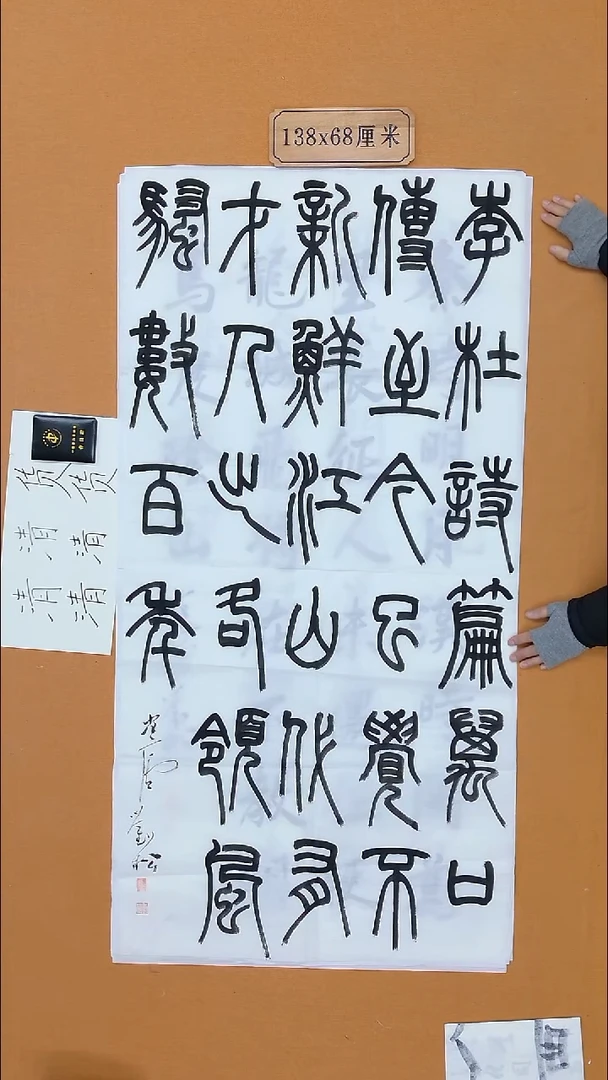 138x68厘米
李杜詩篇萬口
傳至今已覺不
新鮮江山代有
才人出各領風
騷數百年
货货
清清
清清